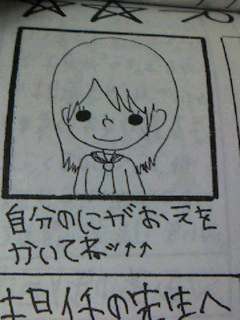 自分のにがおえを
かいてネッ↑↑
担任の先生へ